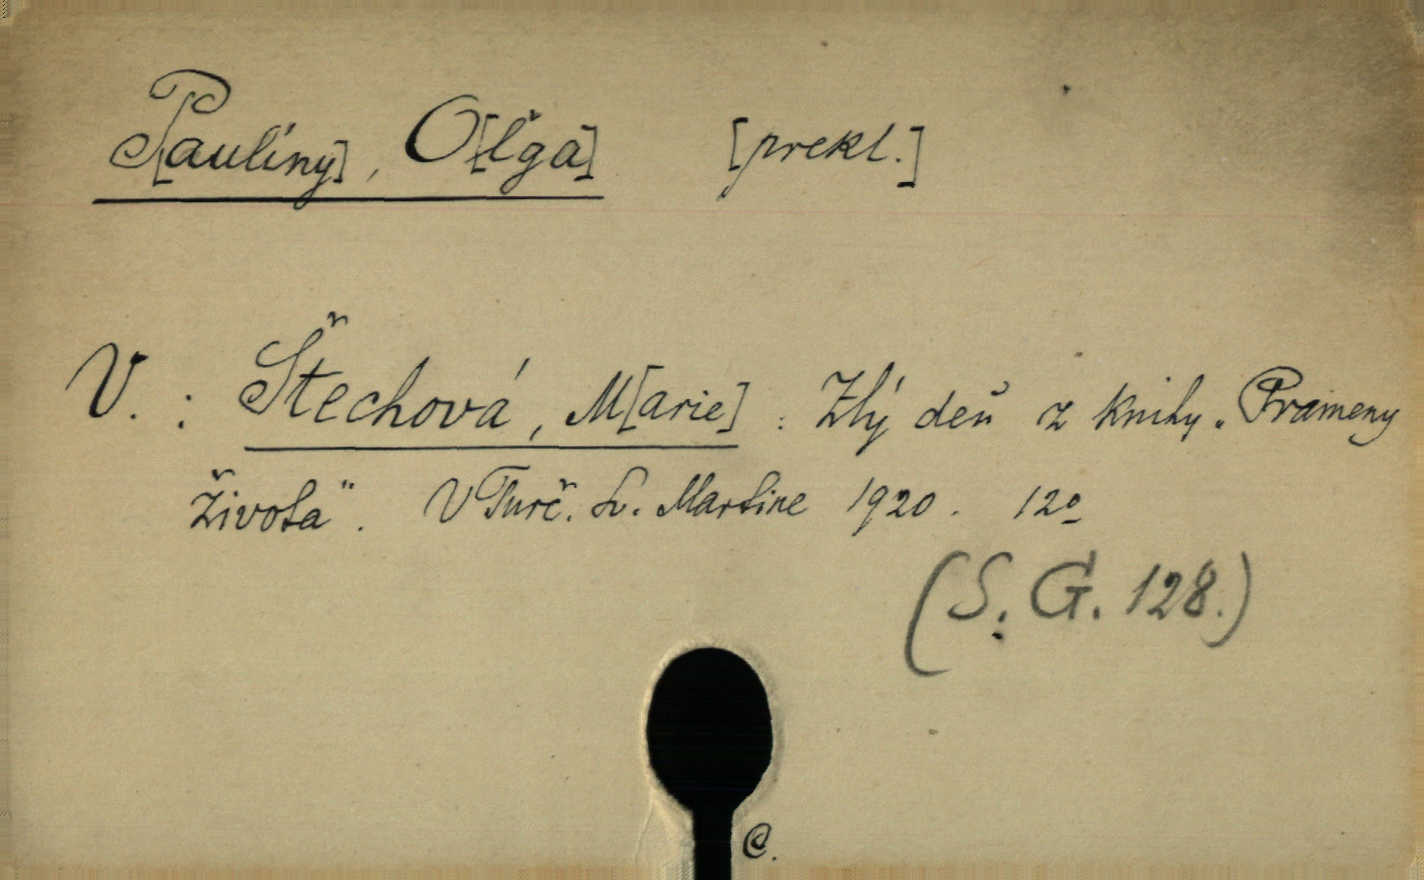 P[aulíny], O[ľga] [prekl.]
V. : Štechová, M[arie] : Zlý deň z knihy „Prameny
života". V Turč. Sv. Martine 1920. 12º
(S. G. 128.)
@.